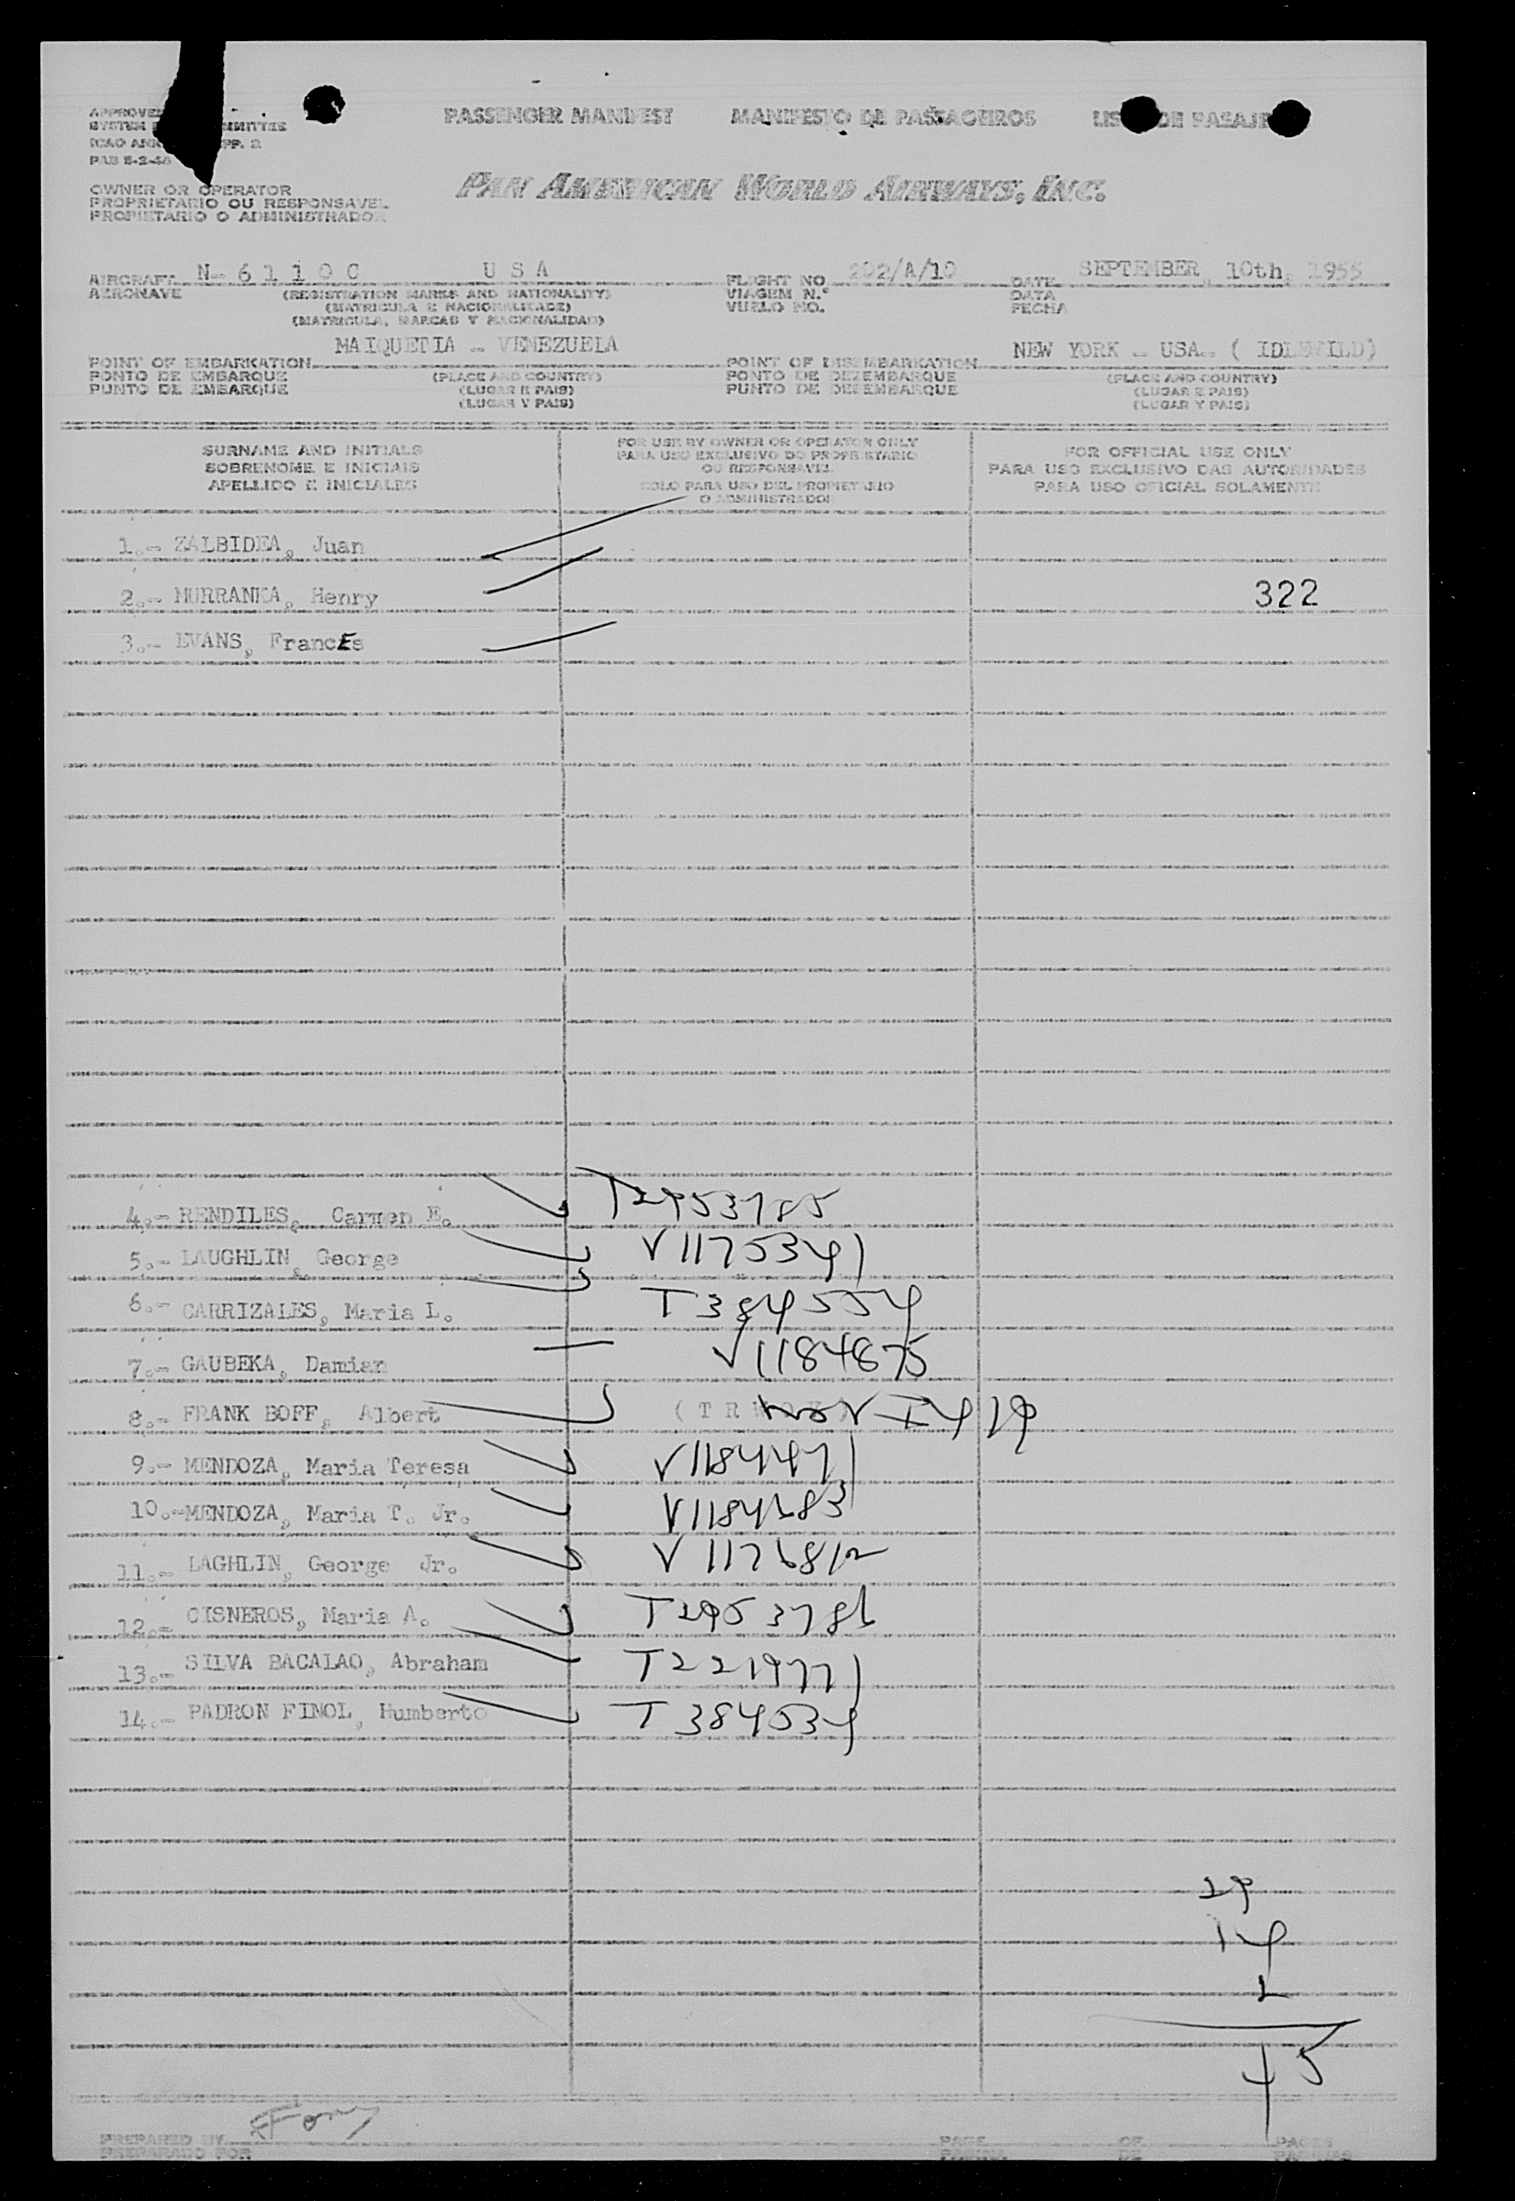 PASSENGER MANIFEST MANIFESTO DE PASSAGEIROS DE
ICAO
PAB 5-2-46
OWNER OR OPERATOR
PROPRIETARIO OU RESPONSAVEL
PROPIETARIO O ADMINISTRADOR
PAN AMERICAN WORLD AIRWAYS, INC.
AIRCRAFT N- 6 1 1 0 C U S A FLIGHT NO. 202/A/10 DATE SEPTEMBER, 10th, 1955
AERONAVE (REGISTRATION MARKS AND NATIONALITY) VIAGEM N.º DATA
(MATRICULA E NACIONALIDADE) VUELO NO. FECHA
(MATRICULA, MARCAS Y NACIONALIDAD)
MAIQUETIA - VENEZUELA NEW YORK - USA- ( IDLEWILD)
POINT OF EMBARKATION POINT OF DISEMBARKATION
PONTO DE EMBARQUE (PLACE AND COUNTRY) PONTO DE DEZEMBARQUE (PLACE AND COUNTRY)
PUNTO DE EMBARQUE (LUGAR E PAIS) PUNTO DE DESEMBARQUE (LUGAR E PAIS)
(LUGAR Y PAIS) (LUGAR Y PAIS)
SURNAME AND INITIALS FOR USE BY OWNER OR OPERATOR ONLY FOR OFFICIAL USE ONLY
SOBRENOME E INICIAIS PARA USO EXCLUSIVO DO PROPRIETARIO PARA USO EXCLUSIVO DAS AUTORIDADES
OU RESPONSAVEL
APELLIDO E INICIALES SOLO PARA USO DEL PROPIETARIO PARA USO OFICIAL SOLAMENTE
O ADMINISTRADOR
1.- ZALBIDEA, Juan
2.- MURRANKA, Henry 322
3.- EVANS, FrancEs
4.- RENDILES, Carmen E. T2953785
5.- LAUGHLIN, George V1175341
6.- CARRIZALES, Maria L. T384554
7.- GAUBEKA, Damian V1184875
8.- FRANK BOFF, Albert
9.- MENDOZA, Maria Teresa V1184471
10.-MENDOZA, Maria T. Jr. V1184683
11.- LAGHLIN, George Jr. V1176812
12.- CISNEROS, Maria A. T2953786
13.- SILVA BACALAO, Abraham T221977
14.- PADRON FINOL, Humberto T384534
29
14
2
45
PREPARED BY PAGE OF PAGES
PREPARADO POR DE